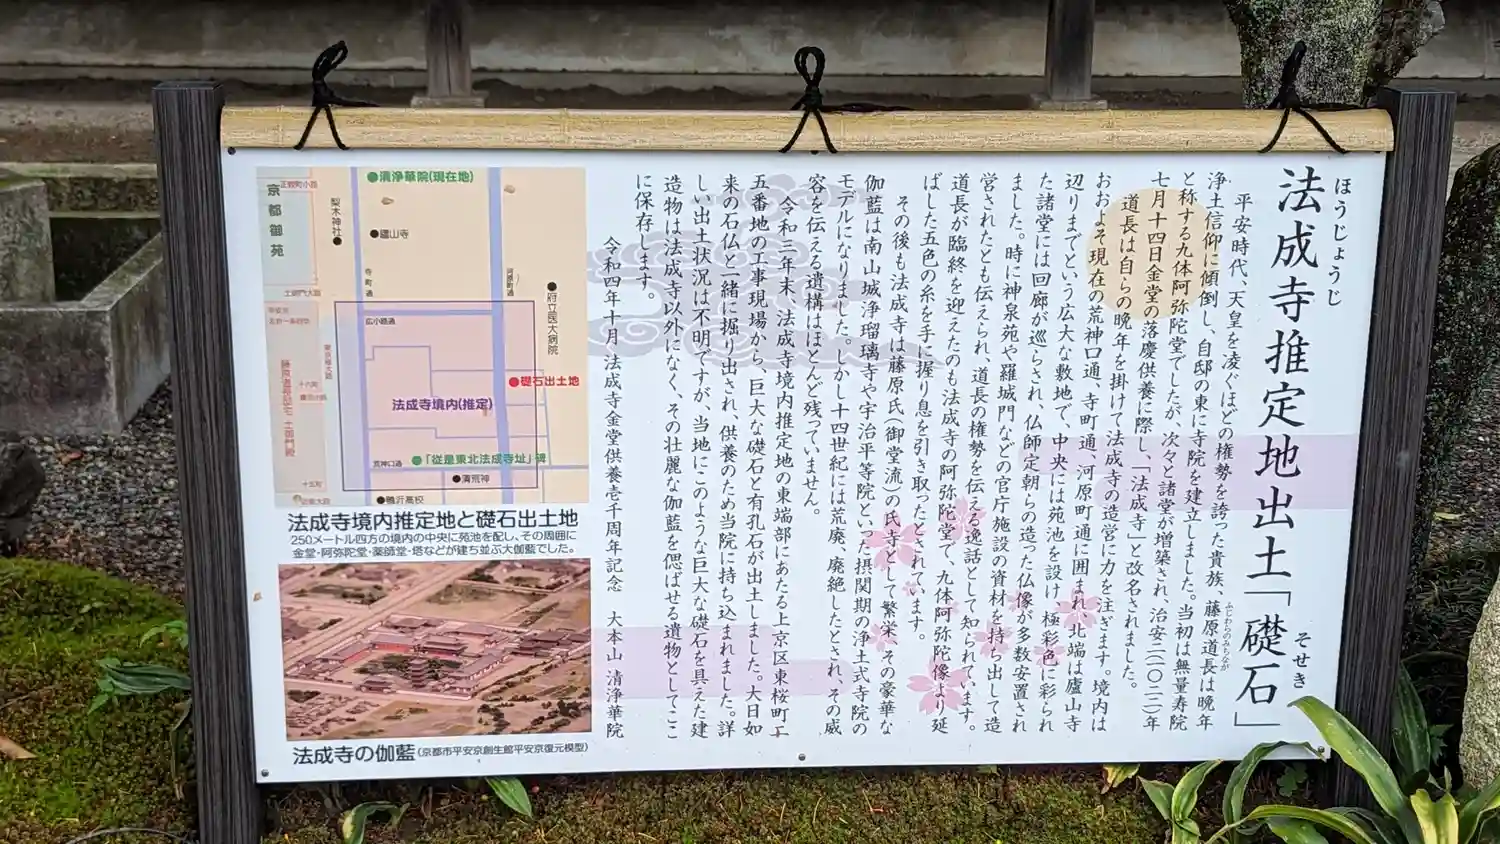 ほうじょうじ
法成寺推定地出土「礎石」
そせき
平安時代、天皇を凌ぐほどの権勢を誇った貴族、藤原道長は晩年
ふじわらのみちなが
浄土信仰に傾倒し、自邸の東に寺院を建立しました。当初は無量寿院
と称する九体阿弥陀堂でしたが、次々と諸堂が増築され、治安二(一〇二二)年
七月十四日金堂の落慶供養に際し、「法成寺」と改名されました。
道長は自らの晩年を掛けて法成寺の造営に力を注ぎます。境内は
おおよそ現在の荒神口通、寺町通、河原町通に囲まれ、北端は廬山寺
辺りまでという広大な敷地で、中央には苑池を設け、極彩色に彩られ
た諸堂には回廊が巡らされ、仏師定朝らの造った仏像が多数安置され
ました。時に神泉苑や羅城門などの官庁施設の資材を持ち出して造
営されたとも伝えられ、道長の権勢を伝える逸話として知られて、ます。
道長が臨終を迎えたのも法成寺の阿弥陀堂で、九体阿弥陀像より延
ばした五色の糸を手に握り息を引き取ったとされています。
その後も法成寺は藤原氏(御堂流)の氏寺として繁栄、その豪華な
伽藍は南山城浄瑠璃寺や宇治平等院といった摂関期の浄土式寺院の
モデルになりました。しかし十四世紀には荒廃、廃絶したとされ、その威
容を伝える遺構はほとんど残っていません。
令和三年末、法成寺境内推定地の東端部にあたる上京区東桜町四
五番地の工事現場から、巨大な礎石と有孔石が出土しました。大日如
来の石仏と一緒に掘り出され、供養のため当院に持ち込まれました。詳
しい出土状況は不明ですが、当地にこのような巨大な礎石を具えた建
造物は法成寺以外になく、その壮麗な伽藍を偲ばせる遺物としてここ
に保存します。
令和四年十月 法成寺金堂供養壱千周年記念 大本山 清浄華院
京都御苑
正親町小路
●清浄華院(現在地)
梨木神社●
●廬山寺
寺町通
河原町通
土御門大路
●府立医大病院
広小路通
●礎石出土地
法成寺境内(推定)
荒神口通
●「従是東北法成寺址」碑
●清荒神
●鴨沂高校
法成寺境内推定地と礎石出土地
250メートル四方の境内の中央に苑池を配し、その周囲に
金堂・阿弥陀堂・薬師堂・塔などが建ち並ぶ大伽藍でした。
法成寺の伽藍(京都市平安京創生館平安京復元模型)